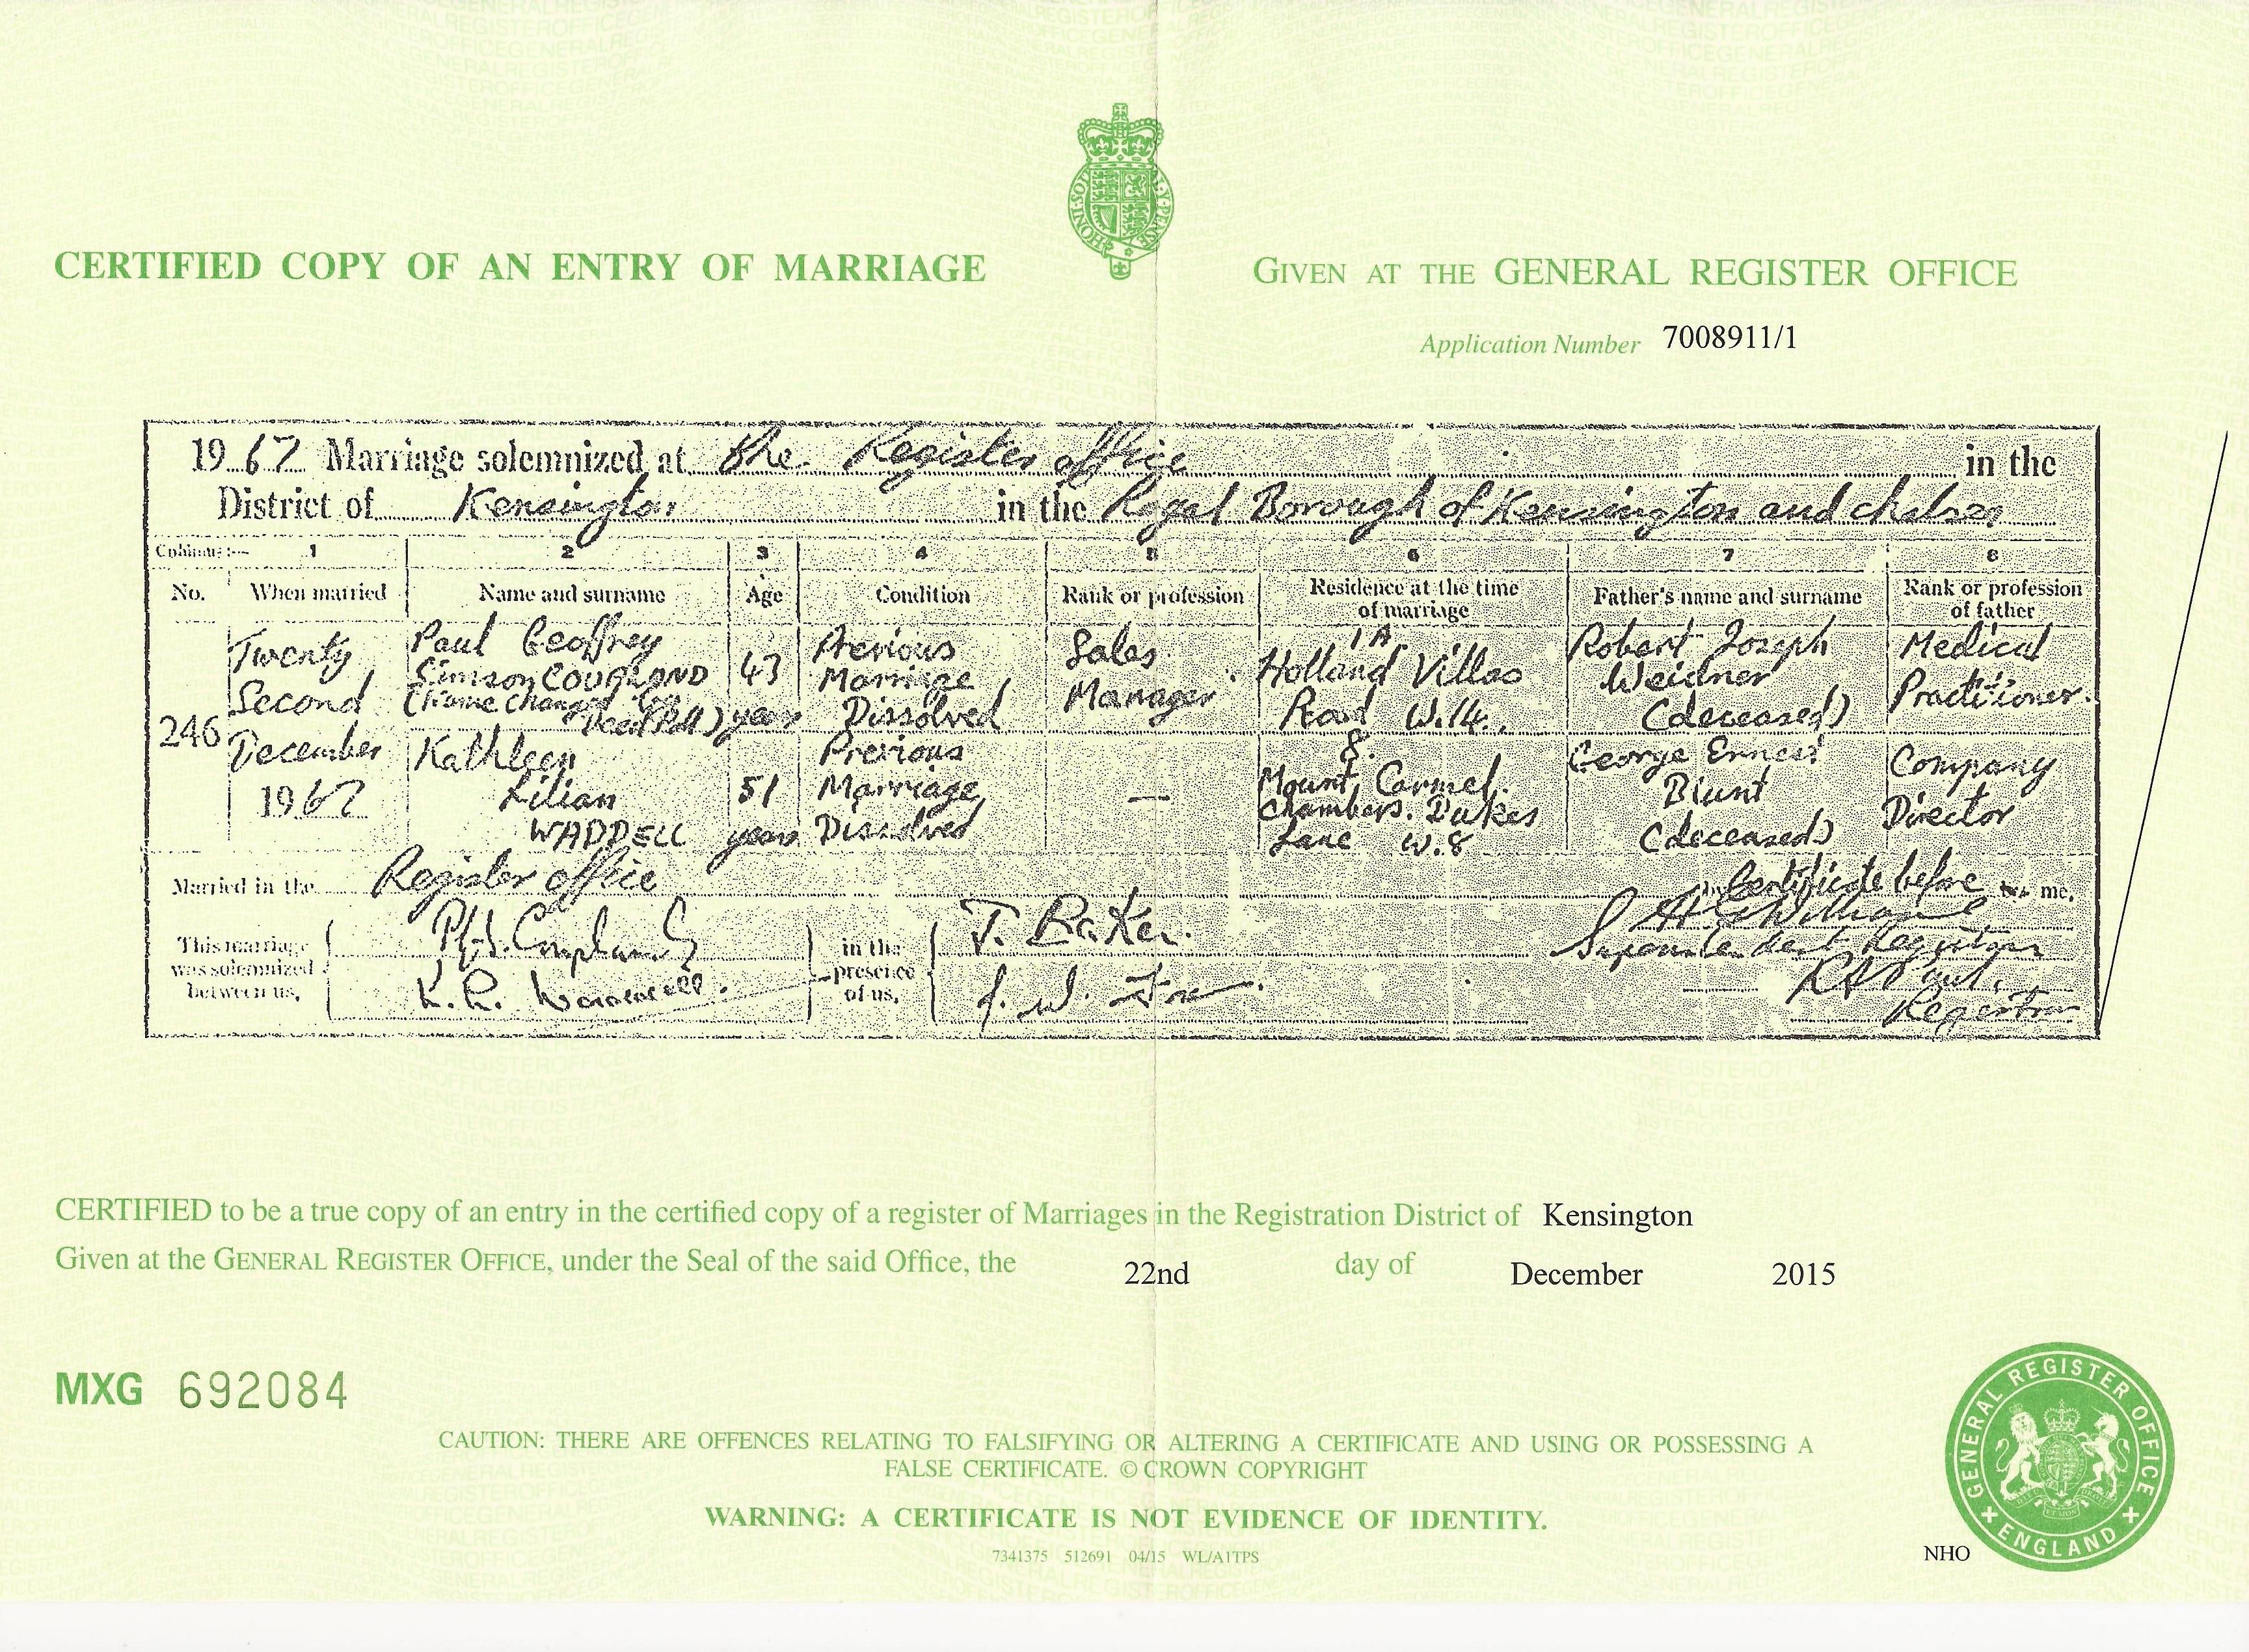 CERTIFIED COPY OF AN ENTRY OF MARRIAGE
GIVEN AT THE GENERAL REGISTER OFFICE
Application Number 7008911/1
1967 Marriage solemnized at The Register office in the
District of Kensington in the Royal Borough of Kensington and Chelsea
Columns:— 1 2 3 4 5 6 7 8
No. When married Name and surname Age Condition Rank or profession Residence at the time of marriage Father's name and surname Rank or profession of father
246
Twenty
Second
December
1967
Paul Geoffrey
Simson COUPLAND
(Name changed by
Deed Poll)
43
years
Previous
Marriage
Dissolved
Sales
Manager
1A.
Holland Villas
Road W.14.
Robert Joseph
Weidner
(deceased)
Medical
Practitioner.
Kathleen
Lilian
WADDELL
51
years
Previous
Marriage
Dissolved
—
8.
Mount Carmel
Chambers. Dukes
Lane W.8
George Ernest
Blunt
(deceased)
Company
Director
Married in the Register office by Certificate before me,
This marriage
was solemnized
between us,
K. L. Waddell.
in the
presence
of us,
T. Baker.
Superintendent Registrar
Registrar
CERTIFIED to be a true copy of an entry in the certified copy of a register of Marriages in the Registration District of Kensington
Given at the GENERAL REGISTER OFFICE, under the Seal of the said Office, the 22nd day of December 2015
MXG 692084
CAUTION: THERE ARE OFFENCES RELATING TO FALSIFYING OR ALTERING A CERTIFICATE AND USING OR POSSESSING A
FALSE CERTIFICATE. © CROWN COPYRIGHT
WARNING: A CERTIFICATE IS NOT EVIDENCE OF IDENTITY.
7341375 512691 04/15 WL/A1TPS
NHO
GENERAL REGISTER OFFICE
ENGLAND